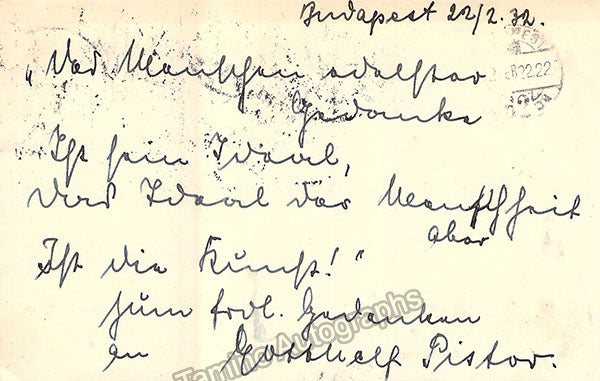 Budapest 22/2. 32.
„Des Menschen edelster
Gedanke
Ist sein Ideal,
Das Ideal der Menschheit
aber
Ist die Kunst!“
zum frdl. Gedenken
an Gotthelf Pistor.
Tamino Autographs